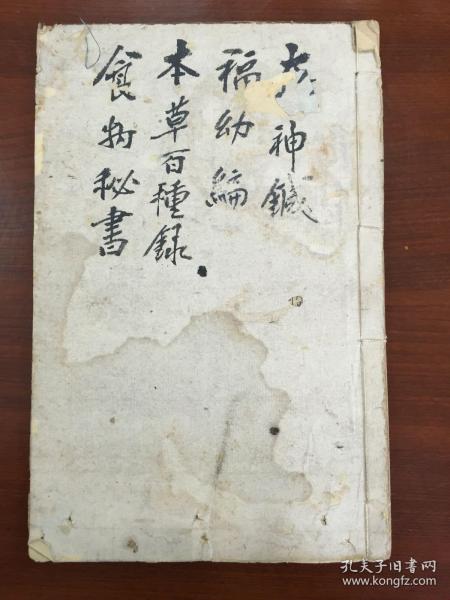 太神鍼
福幼編
本草百種録
食物秘書
孔夫子旧书网
www.kongfz.com